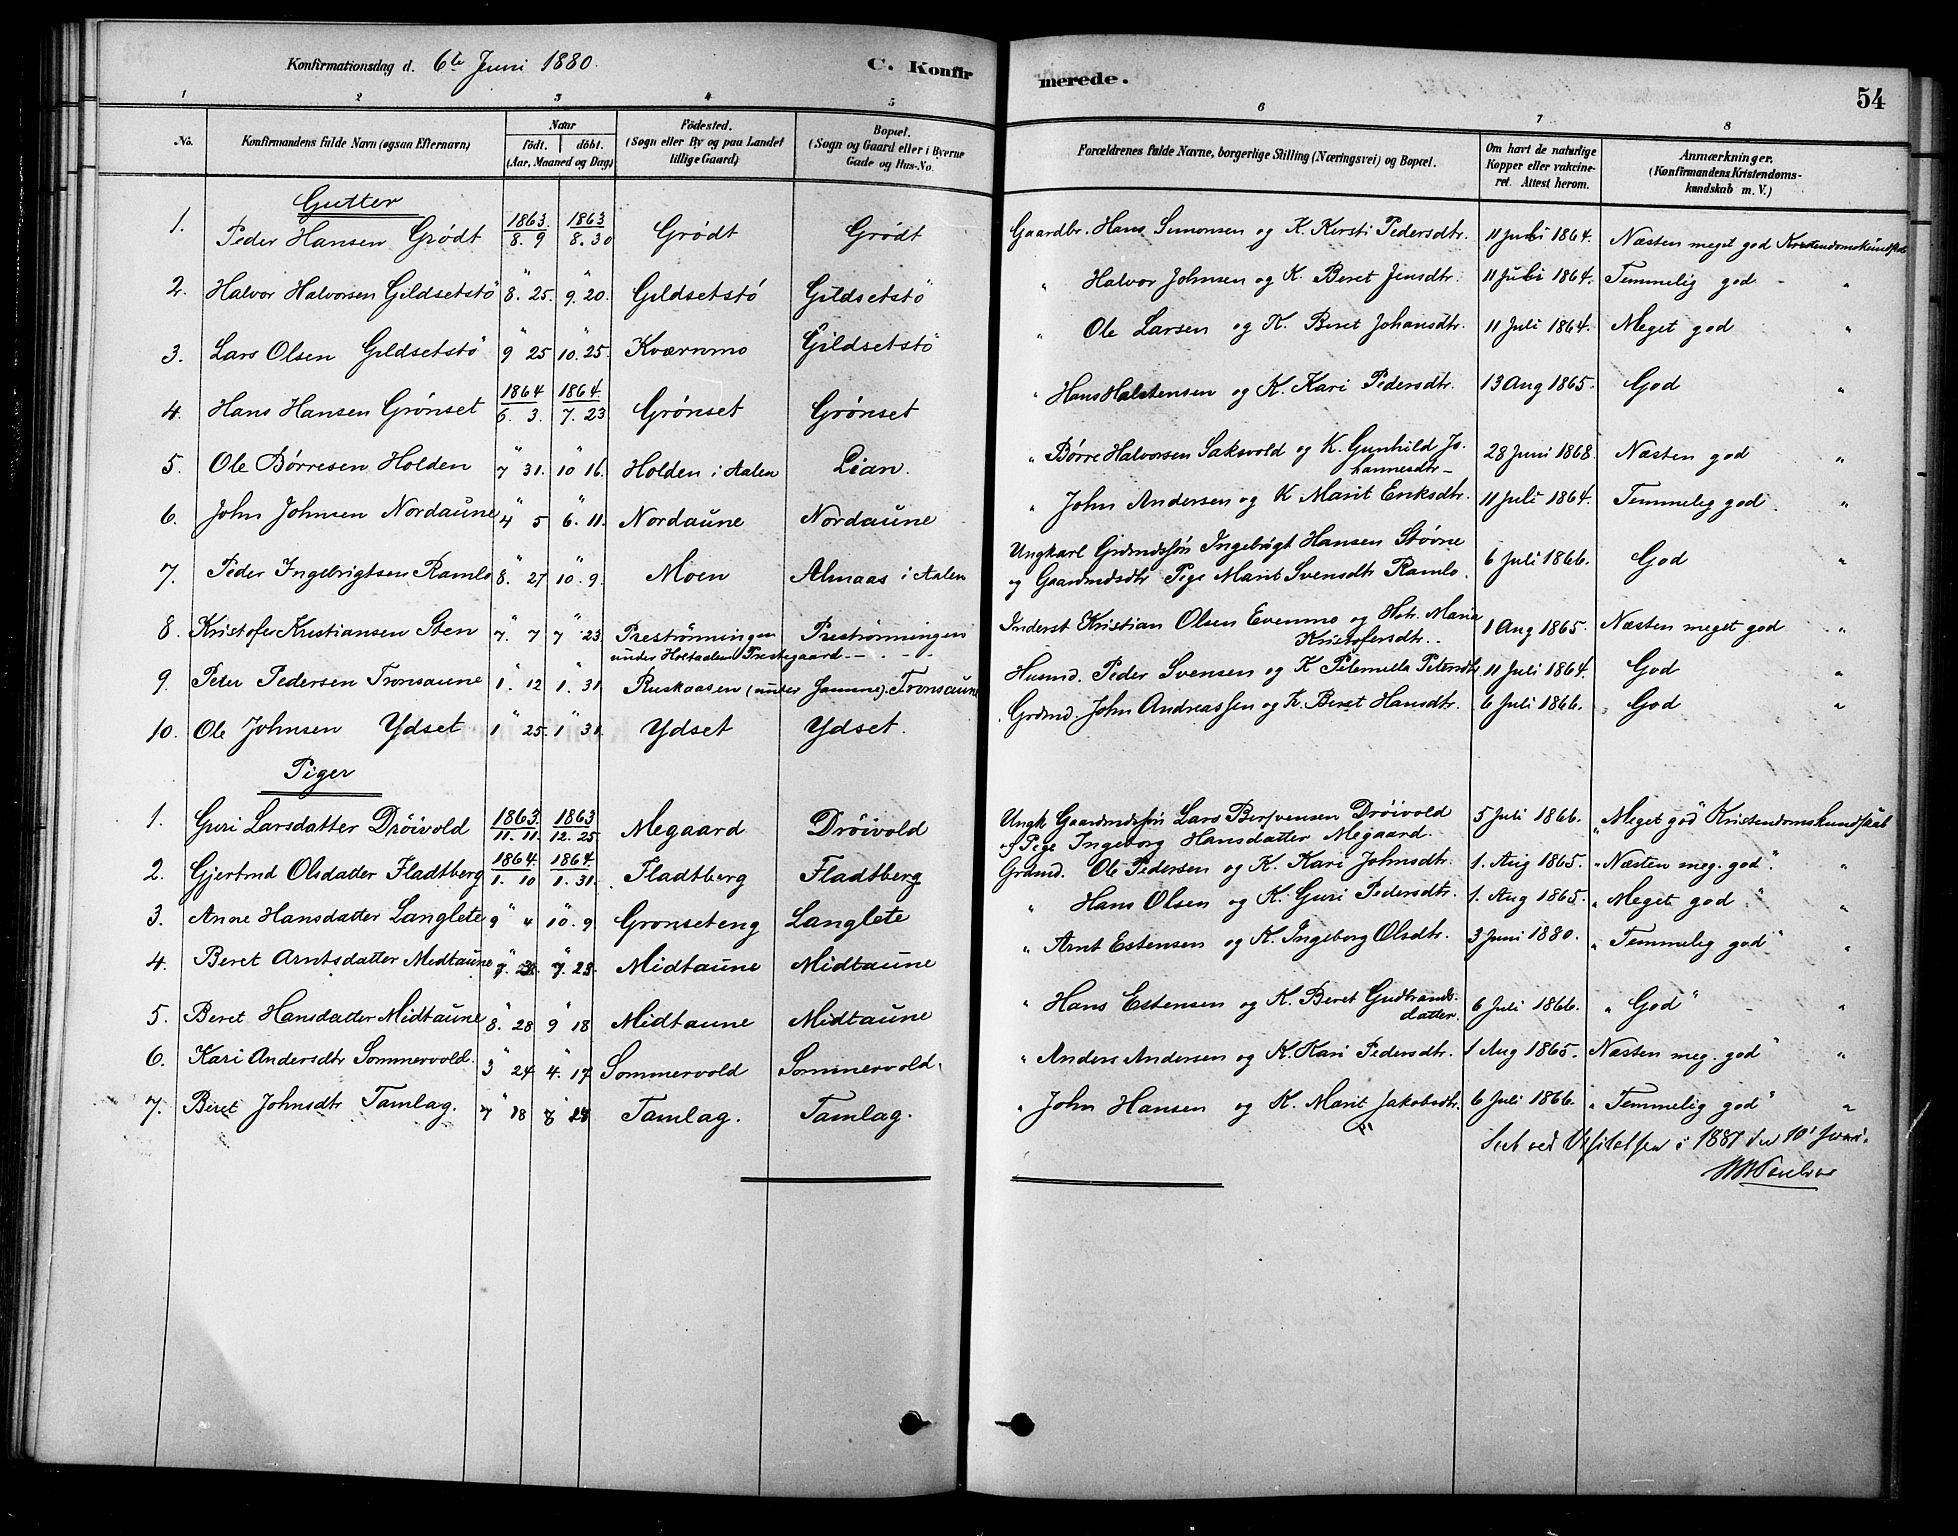 Konfirmationsdag d. 6te Juni 1880. C. Konfirmerede. 54
1 2 3 4 5 6 7 8
No. Konfirmandens fulde Navn (ogsaa Efternavn) Naar födt. döbt. (Aar, Maaned og Dag) Födested. (Sogn eller By og paa Landet tillige Gaard) Bopæl. (Sogn og Gaard eller i Byerne Gade og Hus-No. Forældrenes fulde Navne, borgerlige Stilling (Næringsvei) og Bopæl. Om havt de naturlige Kopper eller vakcineret. Attest herom. Anmærkninger. (Konfirmandens Kristendomskundskab m. V.)
Gutter
1. Peder Hansen Grødt 1863. 8. 9 1863 8. 30 Grødt Grødt Gaardbr. Hans Simonsen og K. Kersti Pedersdtr. 11 Juli 1864. Næsten meget god Kristendomskundskab
2. Halvor Halvorsen Gildsetstö " 8. 25. " 9. 20. Gildsetstö Gildsetstö " Halvor Johnsen og K. Beret Jensdtr. 11 Juli 1864. Temmelig god - "
3. Lars Olsen Gildsetstö " 9 25 " 10. 25. Kværnmo Gildsetstö " Ole Larsen og K. Beret Johansdtr. 11 Juli 1864. Meget god "
4. Hans Hansen Grönset 1864 6 3. 1864. 7. 23 Grönset Grönset " Hans Halstensen og K. Kari Pedersdtr. 13 Aug 1865. God "
5. Ole Börresen Holden " 7 31. " 10 16. Holden i Aalen Lian. " Børre Halvorsen Saksvold og K. Gunhild Johannesdtr - 28 Juni 1868. Næsten god "
6. John Johnsen Nordaune " 4 5 " 6. 11. Nordaune Nordaune " John Andersen og K Marit Eriksdtr. 11 Juli 1864. Temmelig god. "
7. Peder Ingebrigtsen Ramlo " 8. 27 " 10. 9. Moen Almaas i Aalen Ungkarl Grdmdssön Ingebrigt Hansen Stövne
og Gaardmdsdtr Pige Marit Svensdtr Ramlo. 6 Juli 1866. God "
8. Kristofer Kristiansen Sten " 7. 7 " 7 23 Preströnningen Preströnningen Inderst Kristian Olsen Evenmo og Hstr. Maria Kristofersdtr. 1 Aug 1865. Næsten meget god "
under Holtaalen Prestegaard - . - . -
9. Peter Pedersen Tronsaune " 1. 12 " 1. 31 Ruskaasen (under Jamne). Tronsaune Husmd. Peder Svensen og K Peternella Petersdtr 11 Juli 1864. God "
10. Ole Johnsen Ydset " 1 25. " 1 31. Ydset Ydset. Grdmd. John Andreassen og K. Beret Hansdtr. 6 Juli 1866. God "
Piger
1. Guri Larsdatter Dröivold 1863. 11. 11. 1863 12. 25 Megaard Dröivold Ungk Gaardmdssön Lars Bersvensen Dröivold
of Pige Ingeborg Hansdatter Megaard. 5 Juli 1866. "Meget god" Kristendomskundskab
2. Gjertrud Olsdatter Fladtberg 1864. 1. 10 1864. 1. 31. Fladtberg Fladtberg Grdmd. Ole Pedersen og K. Kari Johnsdtr. 1. Aug 1865. "Næsten meg. god". "
3. Anne Hansdatter Langlete " 9 4 " 10. 9 Grønseteng Langlete " Hans Olsen og K. Guri Pedersdtr. 1. Aug 1865. "Meget god" "
4. Beret Arntsdatter Midtaune " 7. 23. Midtaune Midtaune " Arnt Estensen og K. Ingeborg Olsdtr. 3 Juni 1880. "Temmelig god" "
5. Beret Hansdatter Midtaune " 8. 28 " 9 18 Midtaune Midtaune " Hans Estensen og K. Beret Gudbrandsdatter. 6 Juli 1866. "God" - "
6. Kari Andersdtr Sommervold. " 3 24 " 4. 17 Sommervold Sommervold. " Anders Andersen og K. Kari Pedersdtr. 1 Aug 1865. Næsten meg. god" "
7. Beret Johnsdtr Tamlag. " 7 18 Tamlag. Tamlag. " John Hansen og K. Marit Jakobsdtr. 6 Juli 1866. "Temmelig god" "
Seet ved Visitatsen i 1881 den 10'